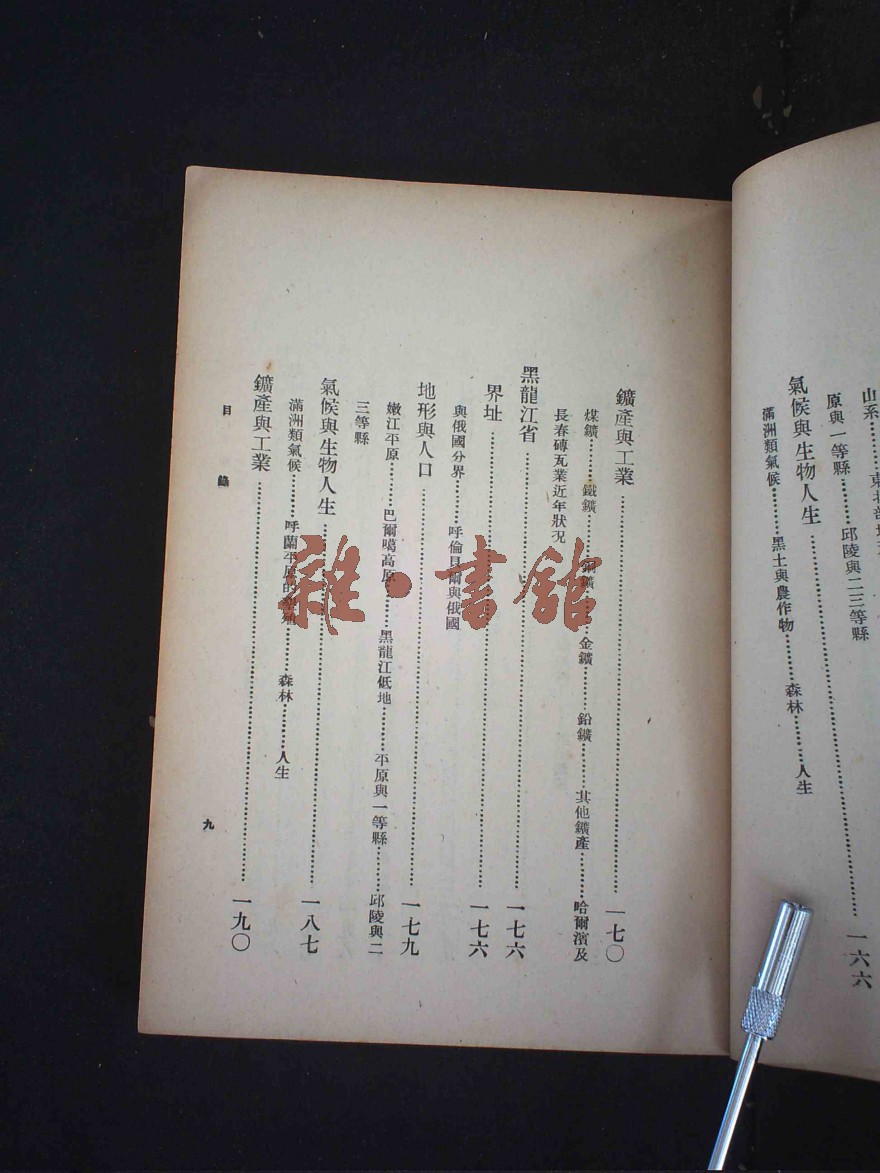 山系……東北部
原與一等縣……邱陵與二三等縣
氣候與生物人生……一六六
滿洲類氣候……黑土與農作物……森林……人生
鑛產與工業……一七〇
煤鑛……鐵鑛……銅鑛……金鑛……鉛鑛……其他鑛產……哈爾濱及
長春磚瓦業近年狀況
黑龍江省……一七六
界址……一七六
與俄國分界……呼倫貝爾與俄國
地形與人口……一七九
嫩江平原……巴爾噶高原……黑龍江低地……平原與一等縣……邱陵與二
三等縣
氣候與生物人生……一八七
滿洲類氣候……呼蘭平原的墾殖……森林……人生
鑛產與工業……一九〇
目錄
九
雜·書館